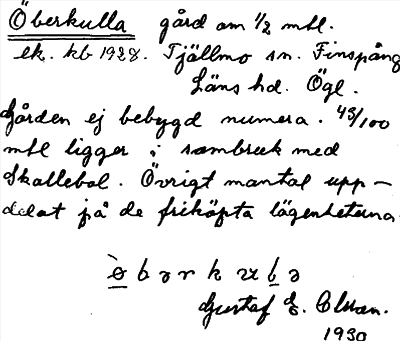 Överkulla gård om 1/2 mtl.
ek. kb 1928. Tjällmo sn. Finspång
Läns hd. Ögl.
Gården ej bebygd numera. 43/100
mtl ligger i sambruk med
Skallebol. Övrigt mantal upp-
delat på de friköpta lägenheterna.
Gustaf E.
1930